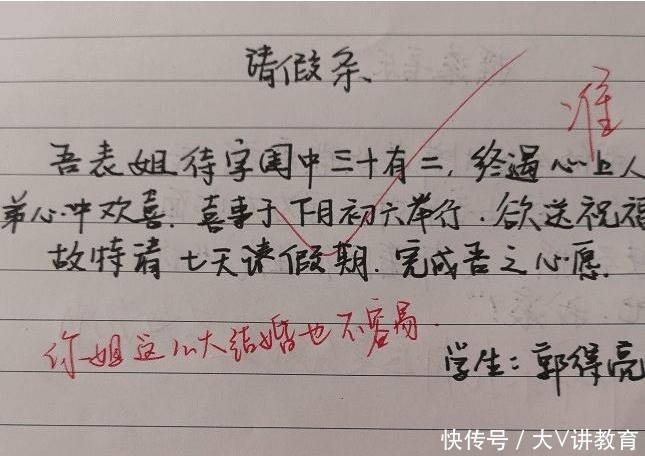 请假条
准
吾表姐待字闺中三十有二,终遇心上人
弟心中欢喜.喜事于下月初六举行.欲送祝福
故特请七天请假期.完成吾之心愿.
你姐这么大结婚也不容易.
学生:郭得亮
快传号/大V讲教育